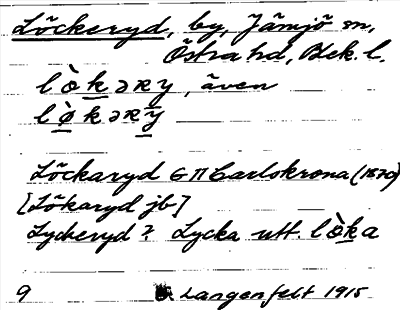 Löckeryd, by, Jämjö sn,
Östra hd, Blek. l.
lò̱kəʀy, även
lø̱̀kəʀy̱
Löckaryd GΠ Carlskrona (1870)
[Lökaryd jb]
Lyckeryd? Lycka utt. lò̱ka
9 Langenfelt 1915